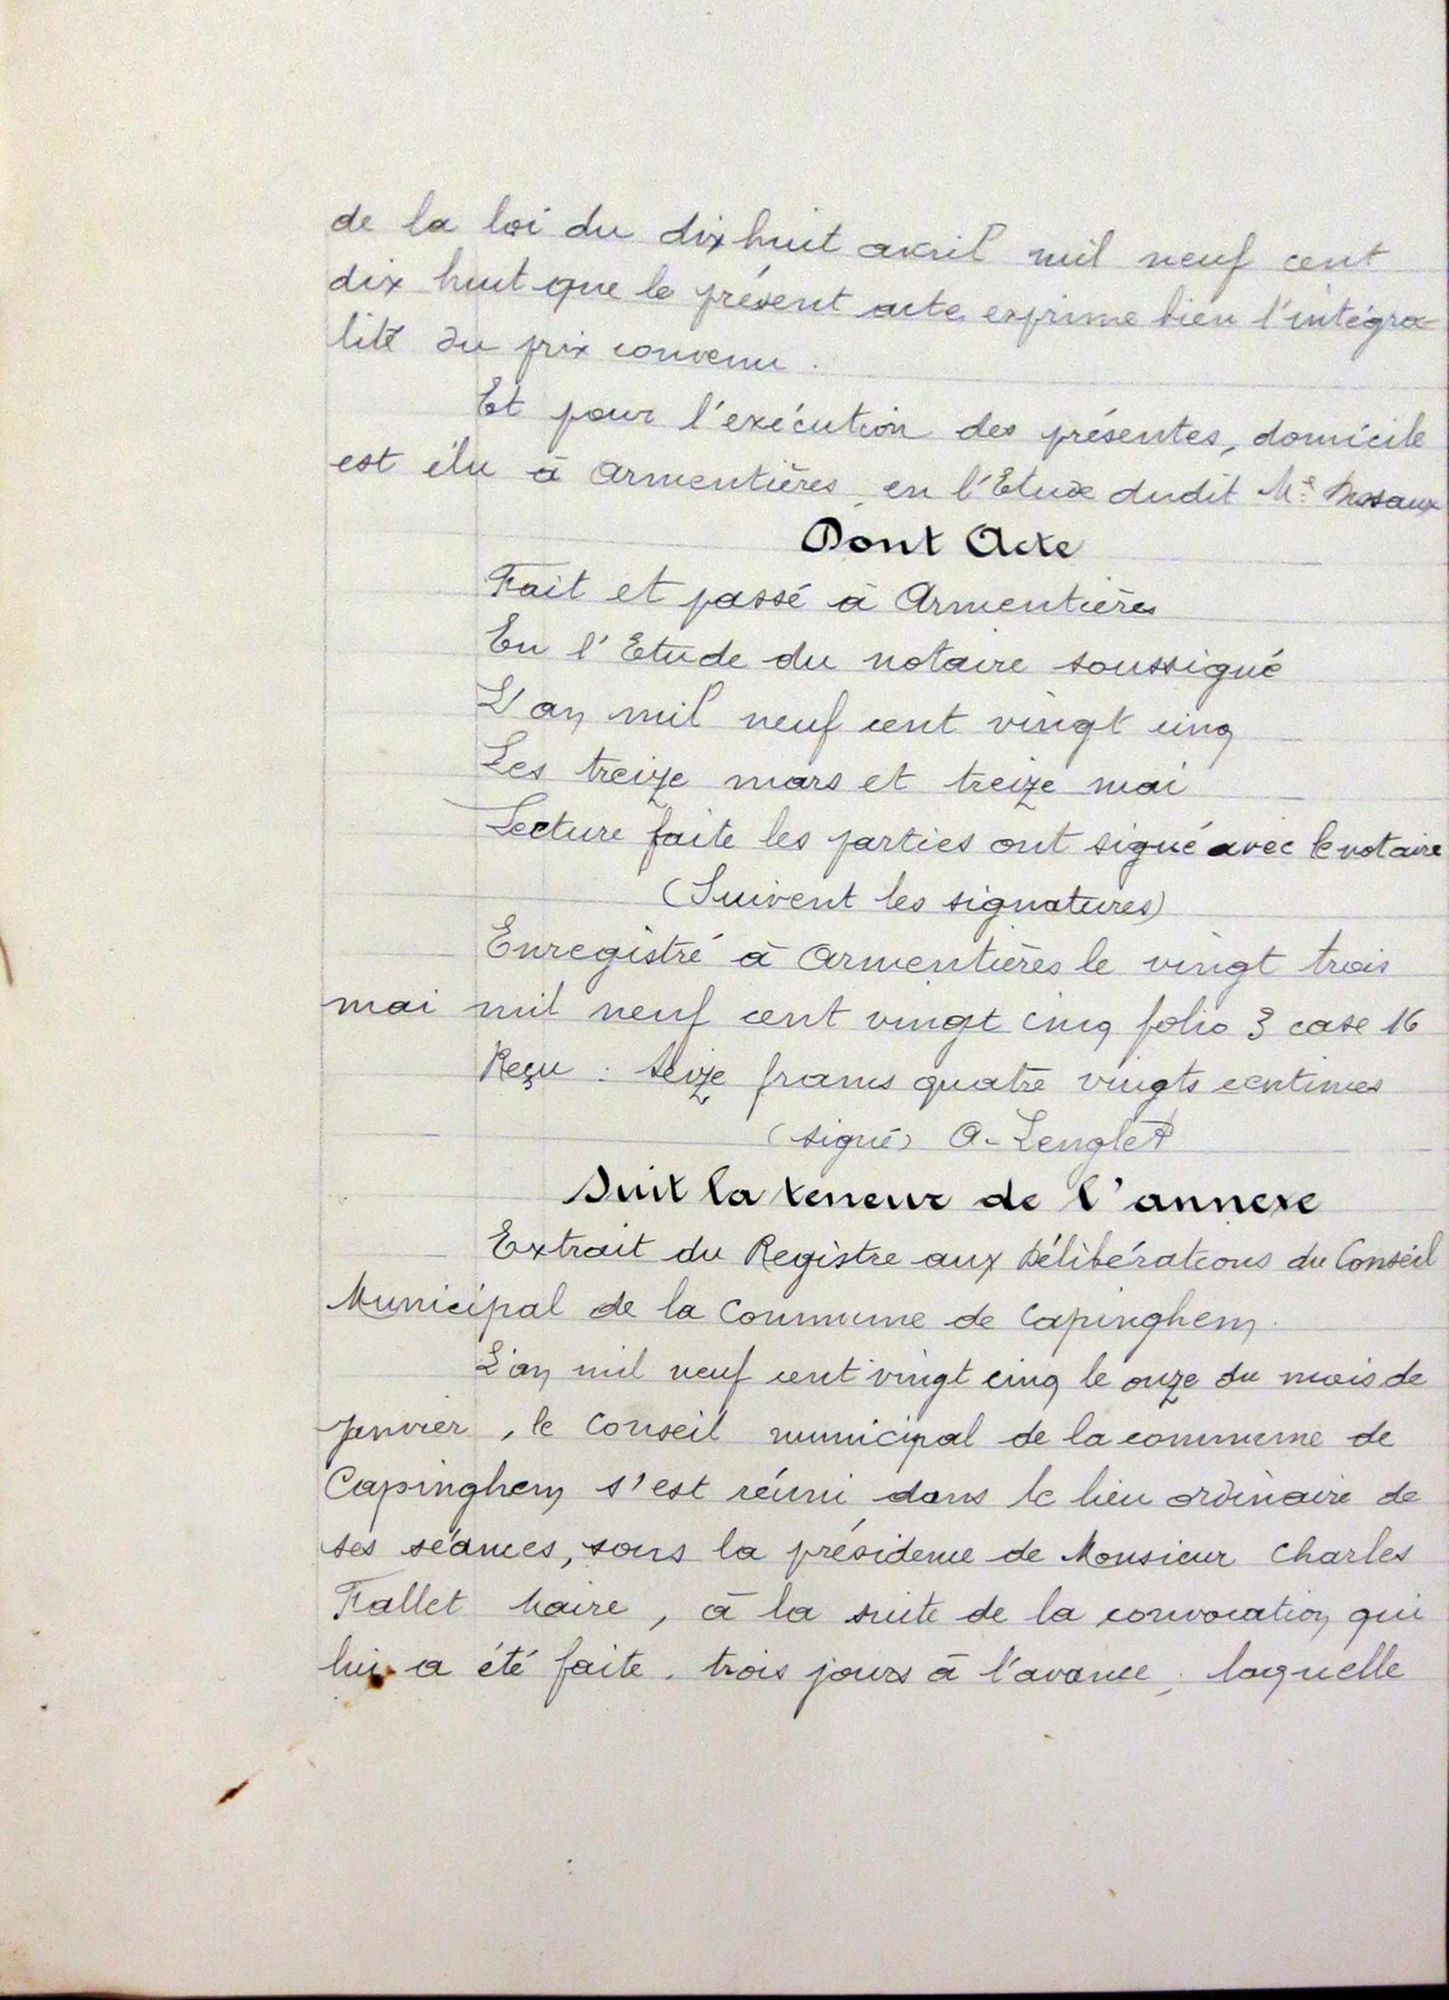 de la loi du dix huit avril mil neuf cent
dix huit que le présent acte exprime bien l'intégra-
lité du prix convenu.
Et pour l'exécution des présentes, domicile
est élu à Armentières, en l'Etude dudit Me
Dont Acte
Fait et passé à Armentières
En l'Etude du notaire soussigné
L'an mil neuf cent vingt cinq
Les treize mars et treize mai
Lecture faite les parties ont signé avec le notaire
(Suivent les signatures)
Enregistré à Armentières le vingt trois
mai mil neuf cent vingt cinq folio 3 case 16
Reçu : Seize francs quatre vingts centimes
(signé) A. Lenglet
Suit la teneur de l'annexe
Extrait du Registre aux Délibérations du Conseil
Municipal de la Commune de Capinghem.
L'an mil neuf cent vingt cinq le onze du mois de
janvier, le Conseil municipal de la commune de
Capinghem s'est réuni dans le lieu ordinaire de
ses séances, sous la présidence de Monsieur Charles
Fallet Maire, à la suite de la convocation qui
lui a été faite, trois jours à l'avance, laquelle